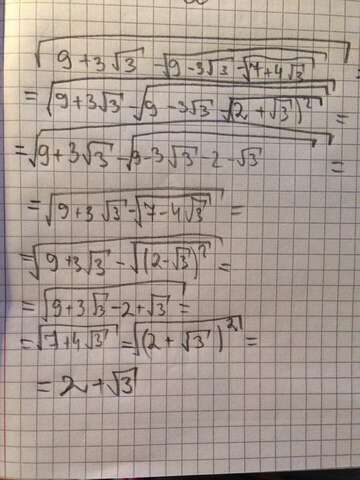 √(9 + 3√3 - √(9 - 3√3 - √(7 + 4√3)))
= √(9 + 3√3 - √(9 - 3√3 - √(2 + √3)²)) =
= √(9 + 3√3 - √(9 - 3√3 - 2 - √3)) =
= √(9 + 3√3 - √(7 - 4√3)) =
= √(9 + 3√3 - √(2 - √3)²) =
= √(9 + 3√3 - 2 + √3) =
= √(7 + 4√3) = √(2 + √3)² =
= 2 + √3